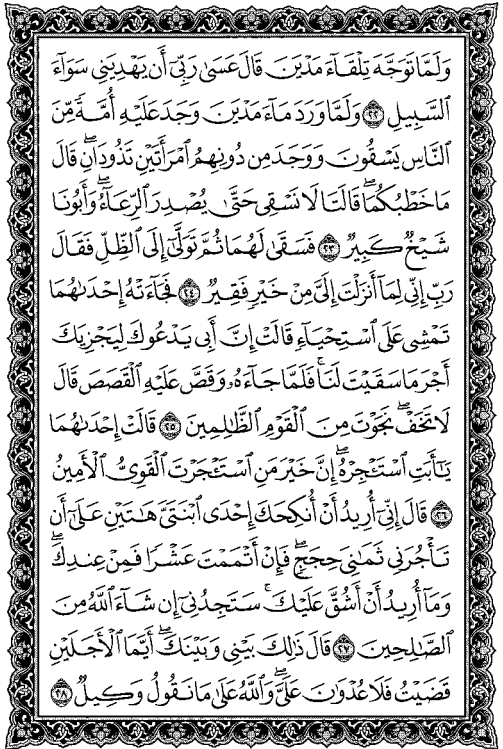 وَلَمَّا تَوَجَّهَ تِلْقَآءَ مَدْيَنَ قَالَ عَسَىٰ رَبِّىٓ أَن يَهْدِيَنِى سَوَآءَ
ٱلسَّبِيلِ ٢٢ وَلَمَّا وَرَدَ مَآءَ مَدْيَنَ وَجَدَ عَلَيْهِ أُمَّةً مِّنَ
ٱلنَّاسِ يَسْقُونَ وَوَجَدَ مِن دُونِهِمُ ٱمْرَأَتَيْنِ تَذُودَانِۖ قَالَ
مَا خَطْبُكُمَاۖ قَالَتَا لَا نَسْقِى حَتَّىٰ يُصْدِرَ ٱلرِّعَآءُۖ وَأَبُونَا
شَيْخٌ كَبِيرٌ ٢٣ فَسَقَىٰ لَهُمَا ثُمَّ تَوَلَّىٰٓ إِلَى ٱلظِّلِّ فَقَالَ
رَبِّ إِنِّى لِمَآ أَنزَلْتَ إِلَىَّ مِنْ خَيْرٍ فَقِيرٌ ٢٤ فَجَآءَتْهُ إِحْدَىٰهُمَا
تَمْشِى عَلَى ٱسْتِحْيَآءٍ قَالَتْ إِنَّ أَبِى يَدْعُوكَ لِيَجْزِيَكَ
أَجْرَ مَا سَقَيْتَ لَنَاۚ فَلَمَّا جَآءَهُۥ وَقَصَّ عَلَيْهِ ٱلْقَصَصَ قَالَ
لَا تَخَفْۖ نَجَوْتَ مِنَ ٱلْقَوْمِ ٱلظَّٰلِمِينَ ٢٥ قَالَتْ إِحْدَىٰهُمَا
يَٰٓأَبَتِ ٱسْتَـْٔجِرْهُۖ إِنَّ خَيْرَ مَنِ ٱسْتَـْٔجَرْتَ ٱلْقَوِىُّ ٱلْأَمِينُ
٢٦ قَالَ إِنِّىٓ أُرِيدُ أَنْ أُنكِحَكَ إِحْدَى ٱبْنَتَىَّ هَٰتَيْنِ عَلَىٰٓ أَن
تَأْجُرَنِى ثَمَٰنِىَ حِجَجٍۖ فَإِنْ أَتْمَمْتَ عَشْرًا فَمِنْ عِندِكَۖ
وَمَآ أُرِيدُ أَنْ أَشُقَّ عَلَيْكَۚ سَتَجِدُنِىٓ إِن شَآءَ ٱللَّهُ مِنَ
ٱلصَّٰلِحِينَ ٢٧ قَالَ ذَٰلِكَ بَيْنِى وَبَيْنَكَۖ أَيَّمَا ٱلْأَجَلَيْنِ
قَضَيْتُ فَلَا عُدْوَٰنَ عَلَىَّۖ وَٱللَّهُ عَلَىٰ مَا نَقُولُ وَكِيلٌ ٢٨